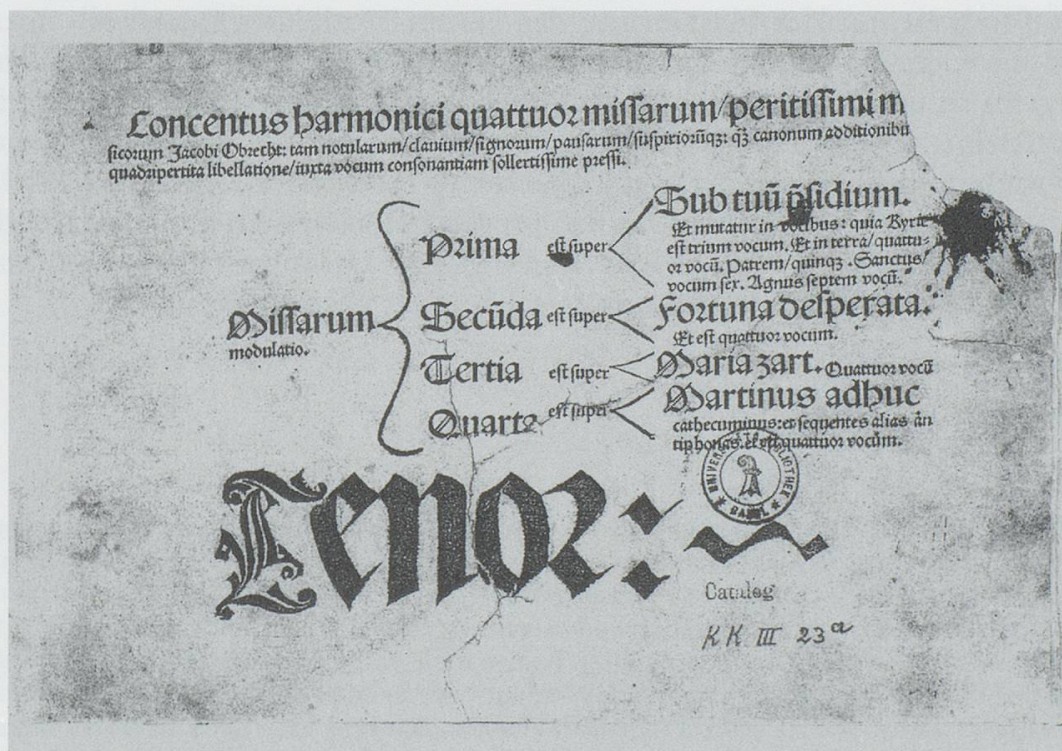 Concentus harmonici quattuor missarum/peritissimi m
sicorum Jacobi Obrecht: tam notularum/clavium/signorum/pausarum/suspiriorūqꝫ: qꝫ̄ canonum additionibu
quadripertita libellatione/iuxta vocum consonantiam sollertissime pressi.
Missarum
modulatio.
Prima est super Sub tuū p̄sidium.
Et mutatur in vocibus: quia Kyrie
est trium vocum. Et in terra/quattu-
or vocū. Patrem/quinqꝫ. Sanctus/
vocum sex. Agnus septem vocū.
Secūda est super Fortuna desperata.
Et est quattuor vocum.
Tertia est super Maria zart. Quattuor vocū
Quarta est super Martinus adhuc
cathecuminus: et sequentes alias an
tiphonas. et est quattuor vocūm.
Tenor:
UNIVERSITÄTS BIBLIOTHEK
BASEL
Catalog
KK III 23a